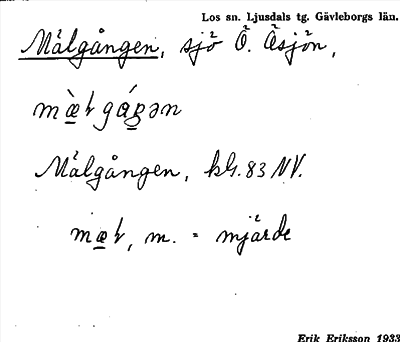 Los sn. Ljusdals tg. Gävleborgs län.
Mälgången, sjö Ö. Äsjön,
Mälgången, kbl. 83 NV.
m. = mjärde
Erik Eriksson 1933